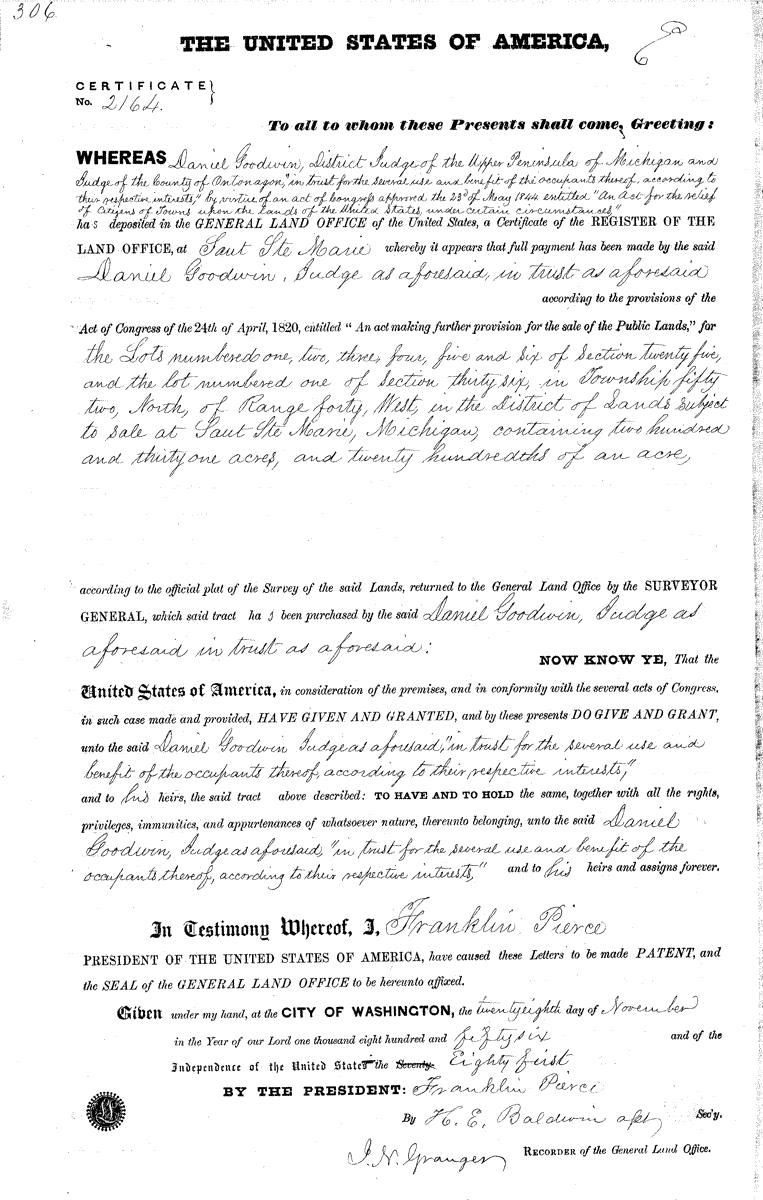 306
THE UNITED STATES OF AMERICA,
CERTIFICATE
No. 2164.
To all to whom these Presents shall come, Greeting:
WHEREAS Daniel Goodwin, District Judge of the Upper Peninsula of Michigan and
Judge of the County of Ontonagon, "in trust for the several use and benefit of the occupants thereof, according to
their respective interests," by virtue of an act of Congress approved the 23d of May 1844 entitled "An Act for the relief
of Citizens of Towns upon the lands of the United States, under certain circumstances"
has deposited in the GENERAL LAND OFFICE of the United States, a Certificate of the REGISTER OF THE
LAND OFFICE, at Saut Ste Marie whereby it appears that full payment has been made by the said
Daniel Goodwin, Judge as aforesaid, in trust as aforesaid
according to the provisions of the
Act of Congress of the 24th of April, 1820, entitled "An act making further provision for the sale of the Public Lands," for
the Lots numbered one, two, three, four, five and six of Section twenty five,
and the lot numbered one of section thirty six, in Township fifty
two, North, of Range forty, West, in the District of Lands subject
to sale at Saut Ste Marie, Michigan, containing two hundred
and thirty one acres, and twenty hundredths of an acre,
according to the official plat of the Survey of the said Lands, returned to the General Land Office by the SURVEYOR
GENERAL, which said tract has been purchased by the said Daniel Goodwin, Judge as
aforesaid in trust as aforesaid:
NOW KNOW YE, That the
United States of America, in consideration of the premises, and in conformity with the several acts of Congress,
in such case made and provided, HAVE GIVEN AND GRANTED, and by these presents DO GIVE AND GRANT,
unto the said Daniel Goodwin Judge as aforesaid, "in trust for the several use and
benefit of the occupants thereof, according to their respective interests,"
and to his heirs, the said tract above described: TO HAVE AND TO HOLD the same, together with all the rights,
privileges, immunities, and appurtenances of whatsoever nature, thereunto belonging, unto the said Daniel
Goodwin, Judge as aforesaid, "in trust for the several use and benefit of the
occupants thereof, according to their respective interests," and to his heirs and assigns forever.
In Testimony Whereof, I, Franklin Pierce
PRESIDENT OF THE UNITED STATES OF AMERICA, have caused these Letters to be made PATENT, and
the SEAL of the GENERAL LAND OFFICE to be hereunto affixed.
Given under my hand, at the CITY OF WASHINGTON, the twenty eighth day of November
in the Year of our Lord one thousand eight hundred and fifty six and of the
Independence of the United States the Seventy Eighty first
BY THE PRESIDENT: Franklin Pierce
By H. E. Baldwin asst Sec'y.
J. N. Granger RECORDER of the General Land Office.